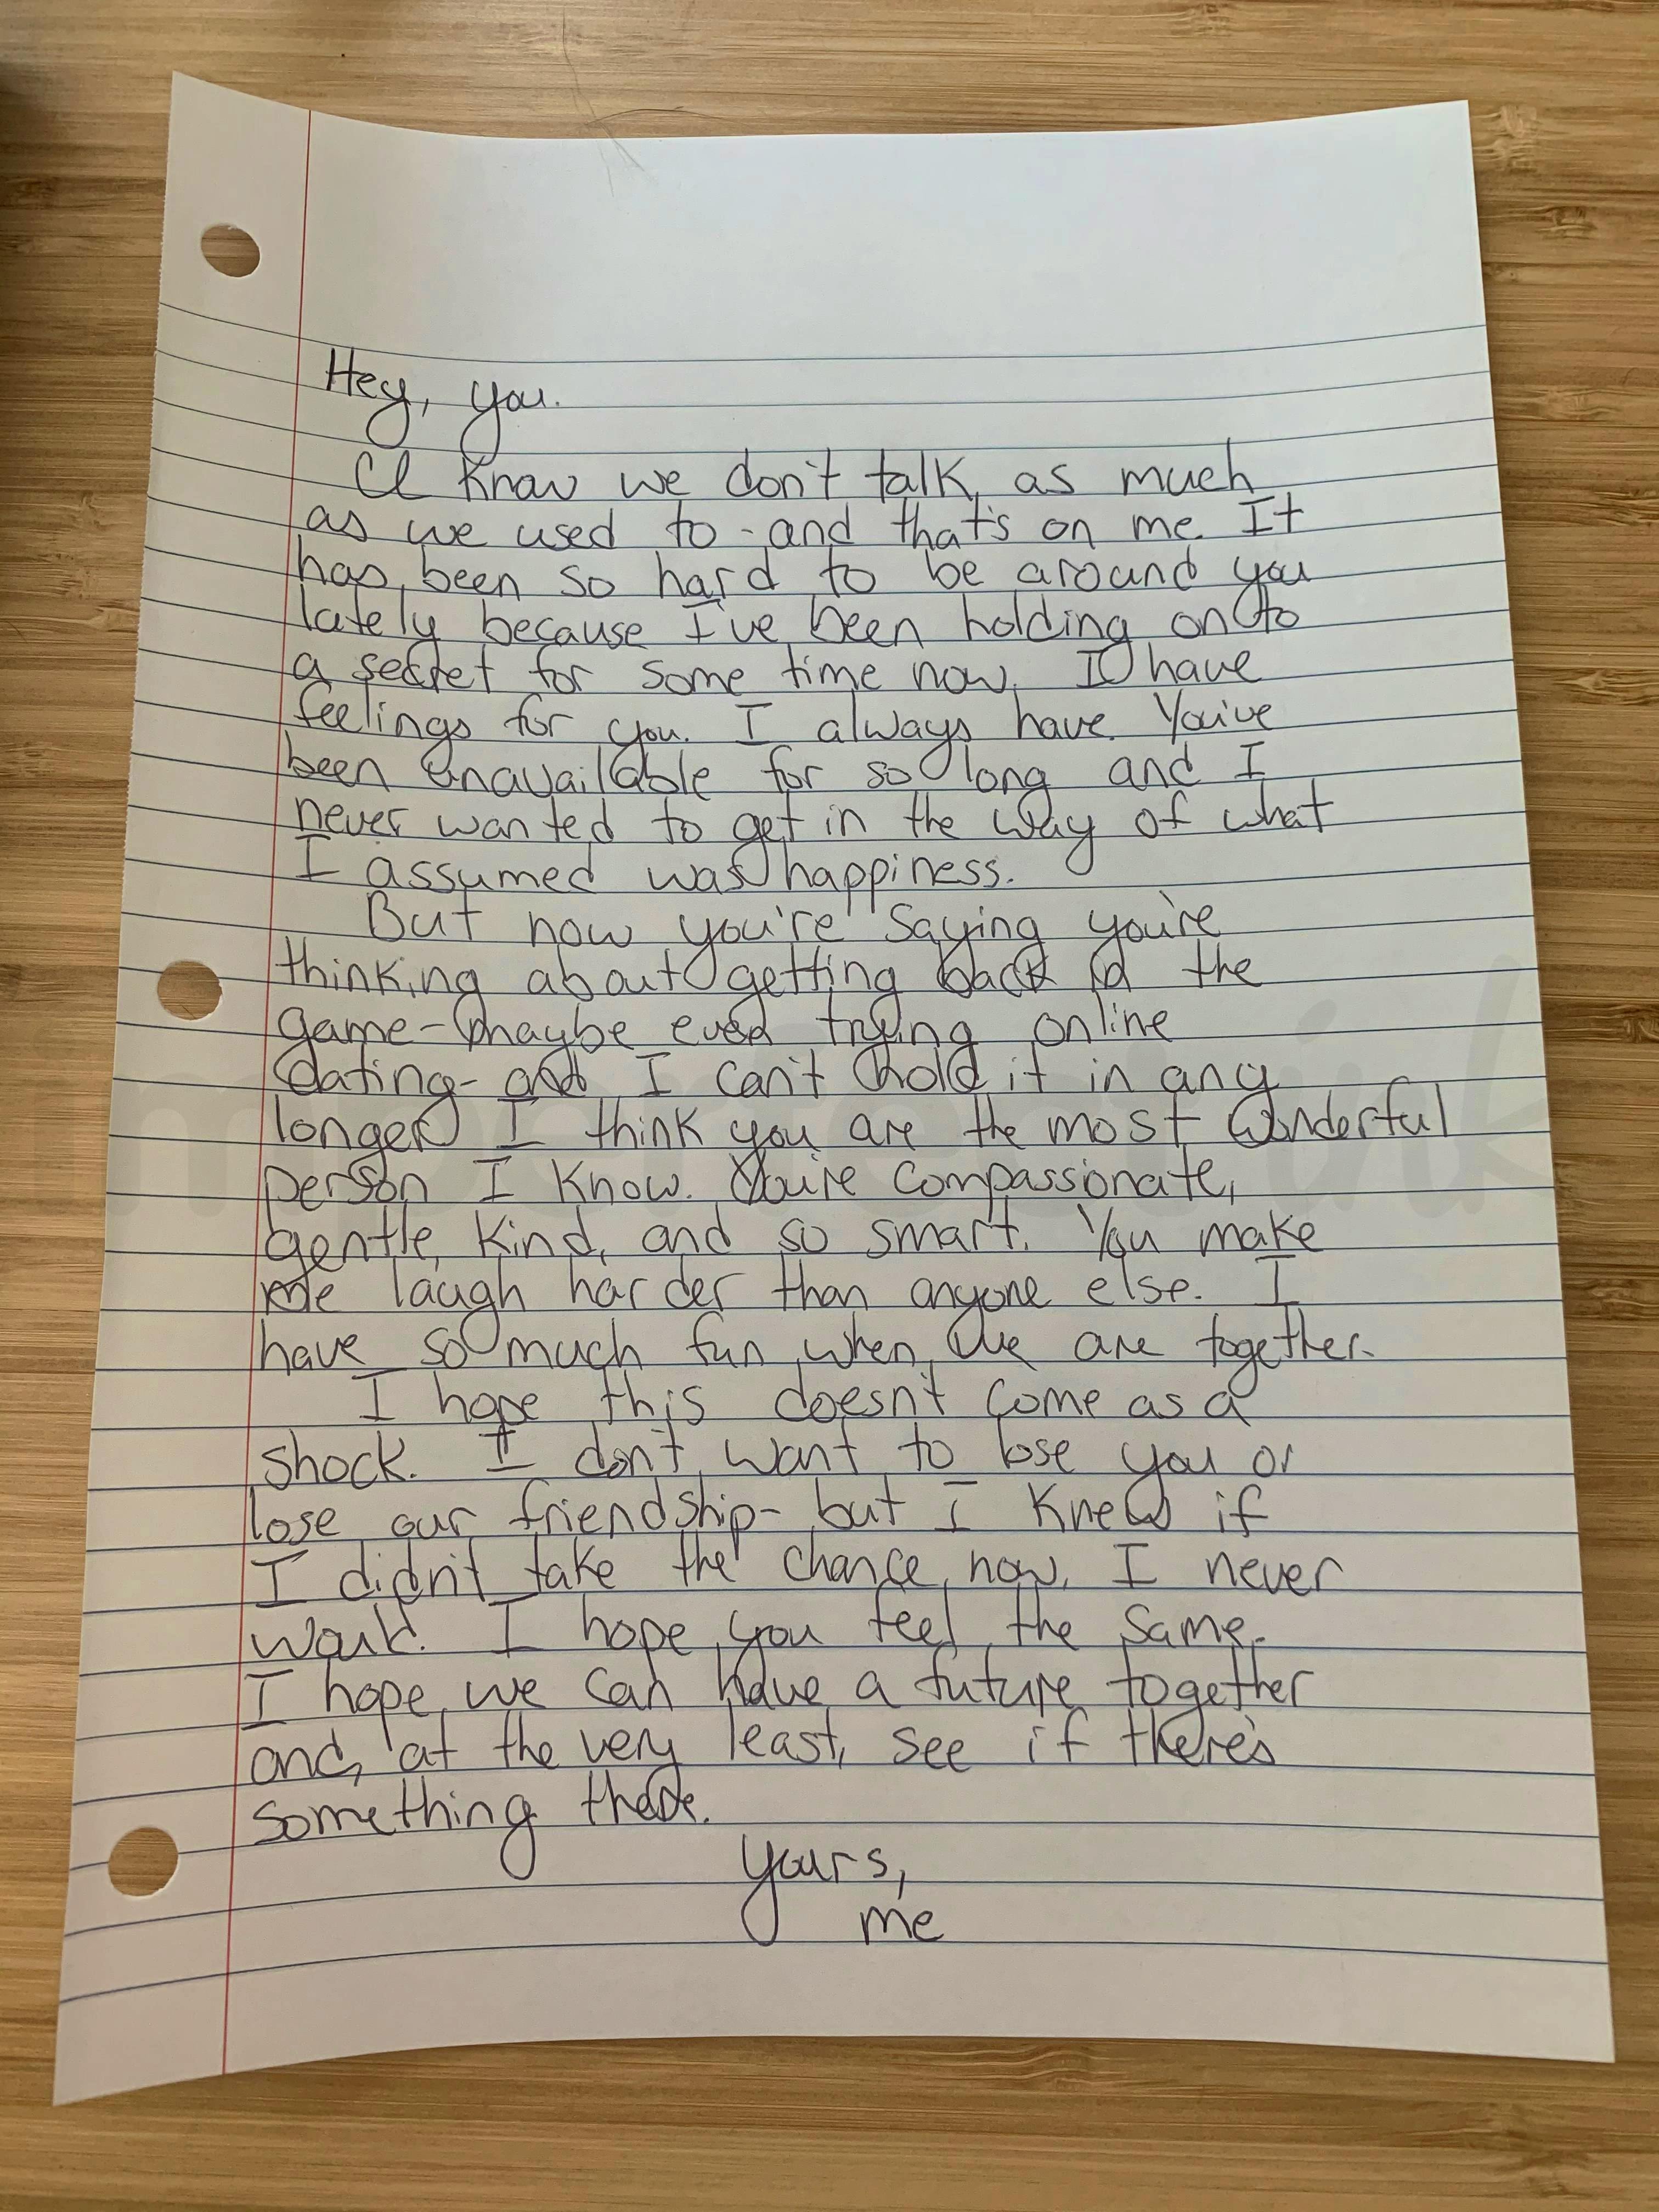 Hey, you.
I know we don't talk as much
as we used to - and that's on me. It
has been so hard to be around you
lately because I've been holding onto
a secret for some time now. I have
feelings for you. I always have. You've
been unavailable for so long and I
never wanted to get in the way of what
I assumed was happiness.
But now you're saying you're
thinking about getting back in the
game - maybe even trying online
dating - and I can't hold it in any
longer. I think you are the most wonderful
person I know. You're compassionate,
gentle, kind, and so smart. You make
me laugh harder than anyone else. I
have so much fun when we are together.
I hope this doesn't come as a
shock. I don't want to lose you or
lose our friendship - but I knew if
I didn't take the chance now, I never
would. I hope you feel the same.
I hope we can have a future together
and, at the very least, see if there's
something there.
Yours,
me